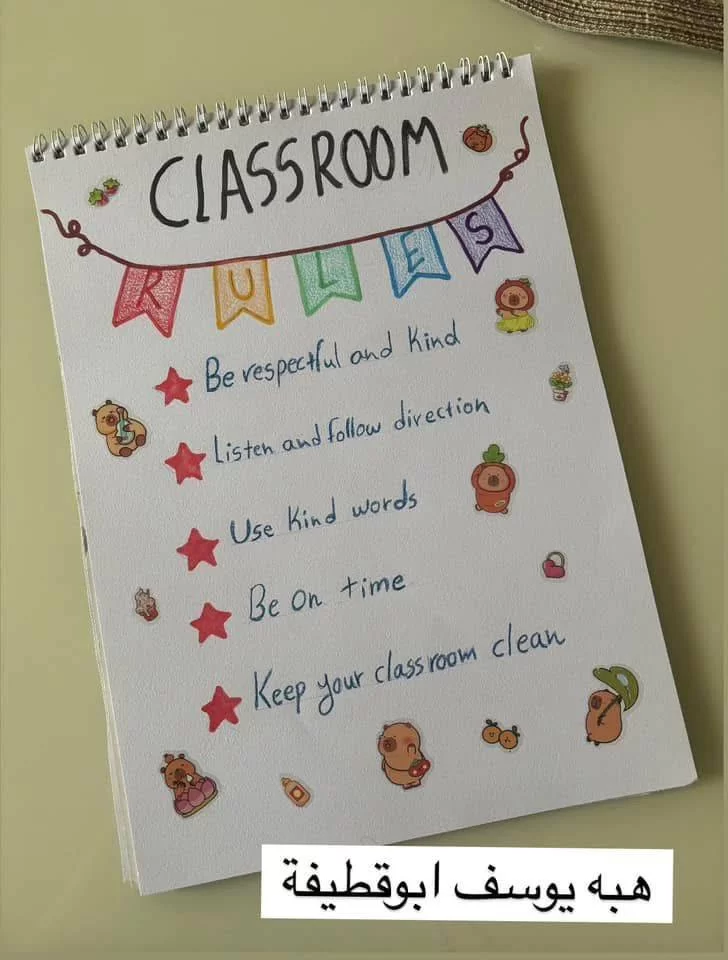 CLASSROOM
RULES
Be respectful and kind
Listen and follow direction
Use kind words
Be on time
Keep your classroom clean
هبه يوسف ابوقطيفة